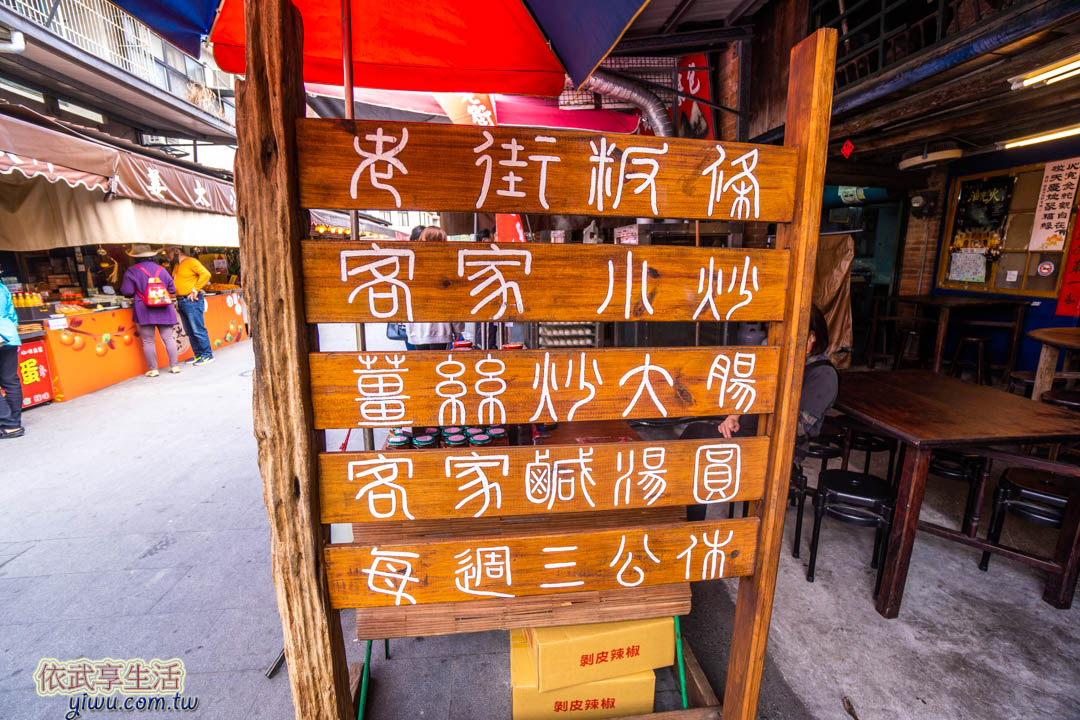 老街粄條
客家小炒
薑絲炒大腸
客家鹹湯圓
每週三公休
剝皮辣椒
剝皮辣椒
依武享生活
yiwu.com.tw